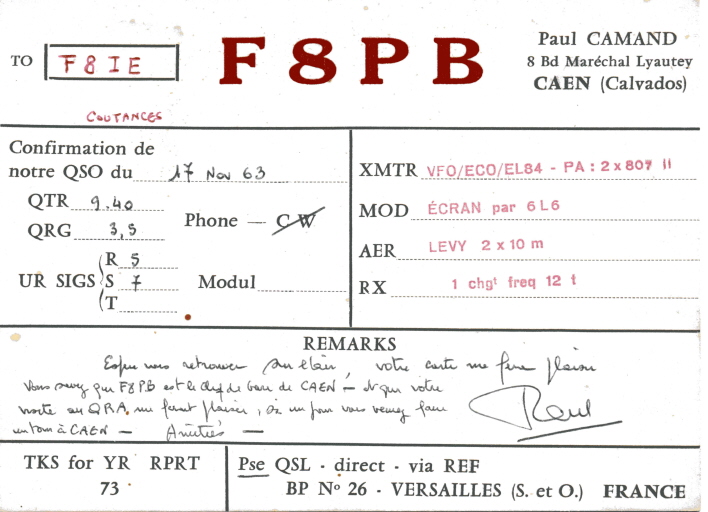 TO F8IE
COUTANCES
F8PB
Paul CAMAND
8 Bd Maréchal Lyautey
CAEN (Calvados)
Confirmation de
notre QSO du 17 Nov 63
QTR 9.40
QRG 3,5
Phone — CW
UR SIGS
R 5
S 7
T
Modul
XMTR VFO/ECO/EL84 - PA : 2 x 807 //
MOD ÉCRAN par 6L6
AER LEVY 2 x 10 m
RX 1 chgt freq 12 t
REMARKS
Espère vous retrouver sur l'air, votre carte me fera plaisir
Vous savez que F8PB est le chef de gare de CAEN — et que votre
visite au QRA, me ferait plaisir, si un jour vous venez faire
un tour à CAEN — Amitiés —
Paul
TKS for YR RPRT
73
Pse QSL - direct - via REF
BP Nº 26 - VERSAILLES (S. et O.) FRANCE